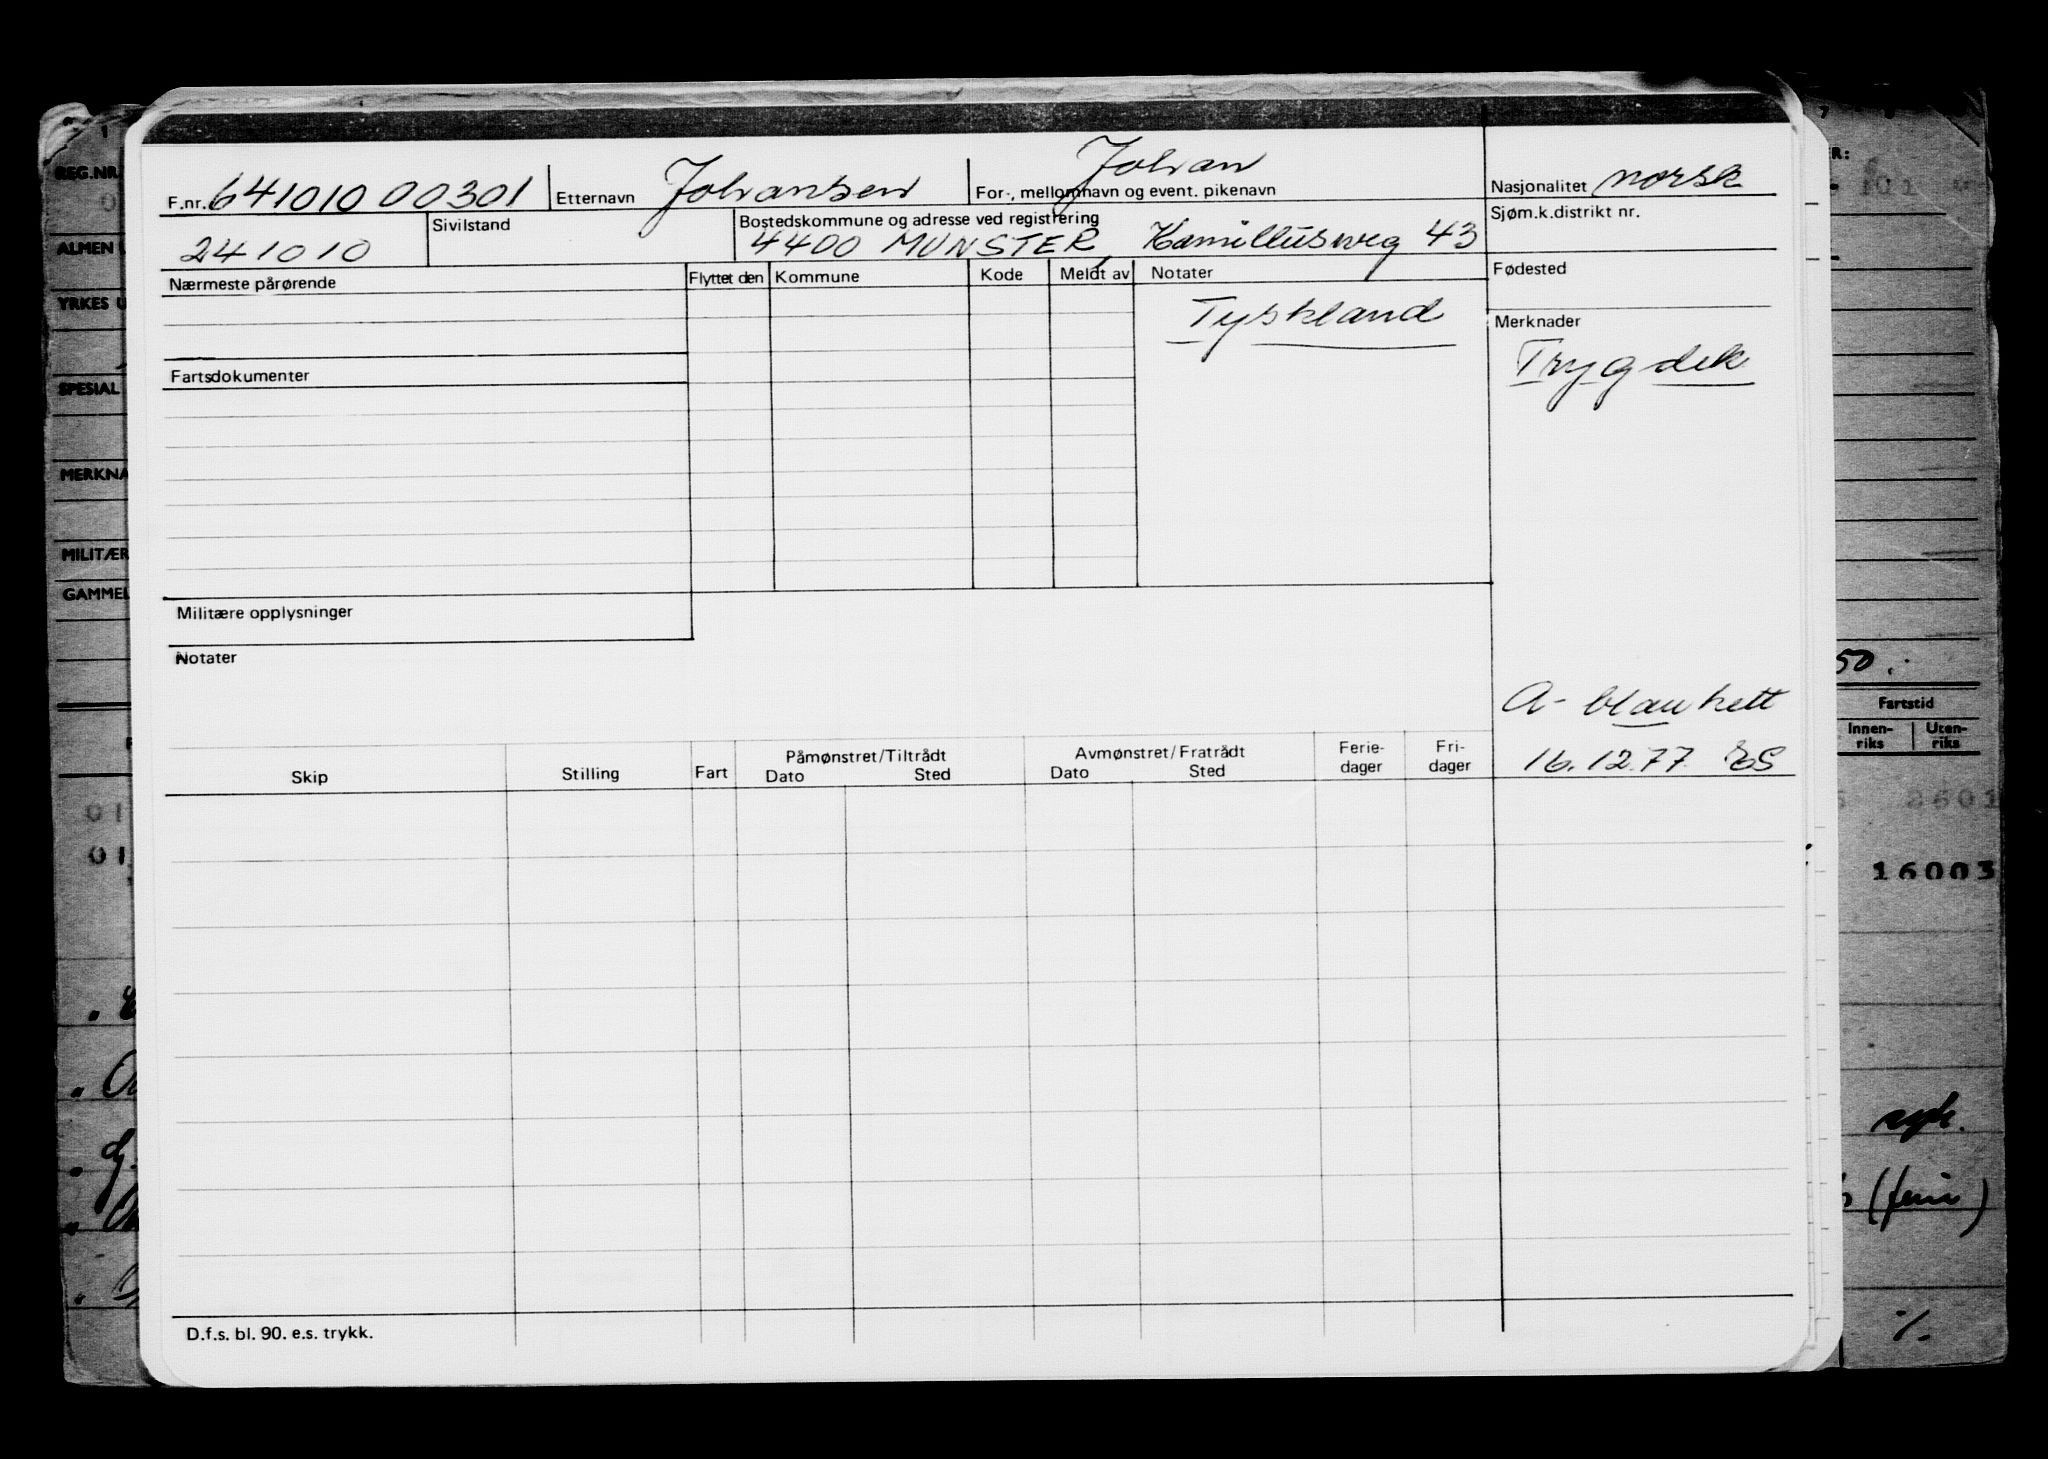 F.nr. 641010 00301 Etternavn Johansen For-, mellomnavn og event. pikenavn Johan Nasjonalitet norsk
241010 Sivilstand Bostedskommune og adresse ved registrering Sjøm.k.distrikt nr.
4400 MUNSTER, Kamillusweg 43
Nærmeste pårørende Flyttet den Kommune Kode Meldt av Notater Fødested
Tyskland
Merknader
Trygdek
Fartsdokumenter
Militære opplysninger
Notater
A- blankett
16.12.77
Skip Stilling Fart Påmønstret/Tiltrådt Avmønstret/Fratrådt Ferie- Fri-
Dato Sted Dato Sted dager dager
D.f.s. bl. 90. e.s. trykk.
1
REG.NR.
ALMEN
YRKES
SPESIAL
MERKNA
MILITÆR
GAMMEL
01
01
7
R:
50.
Fartstid
Innen- Uten-
riks riks
8601
16003
(ferie)